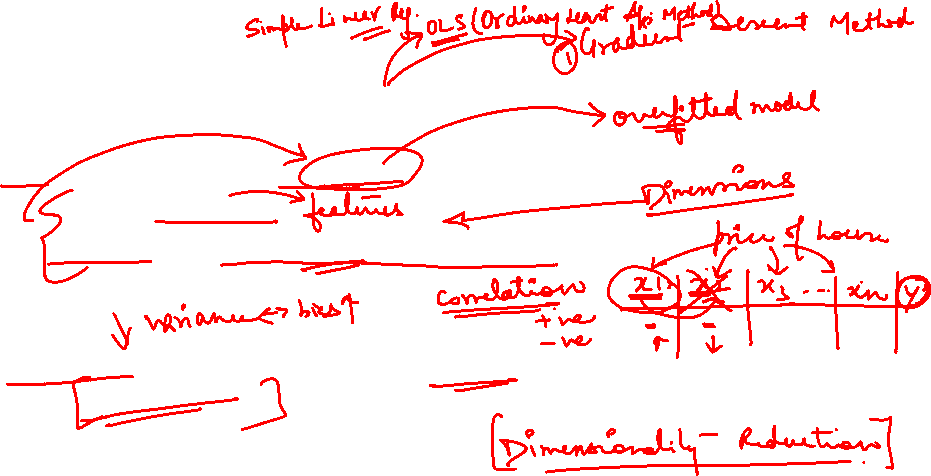 Simple Linear Reg. OLS (Ordinary Least Sq. Method)
① Gradient Descent Method
overfitted model
Dimensions
features
price of house
Correlation x1 x2 x3 ... xn y
+ve
-ve
↓ variance <-> bias ↑
[Dimensionality Reduction]